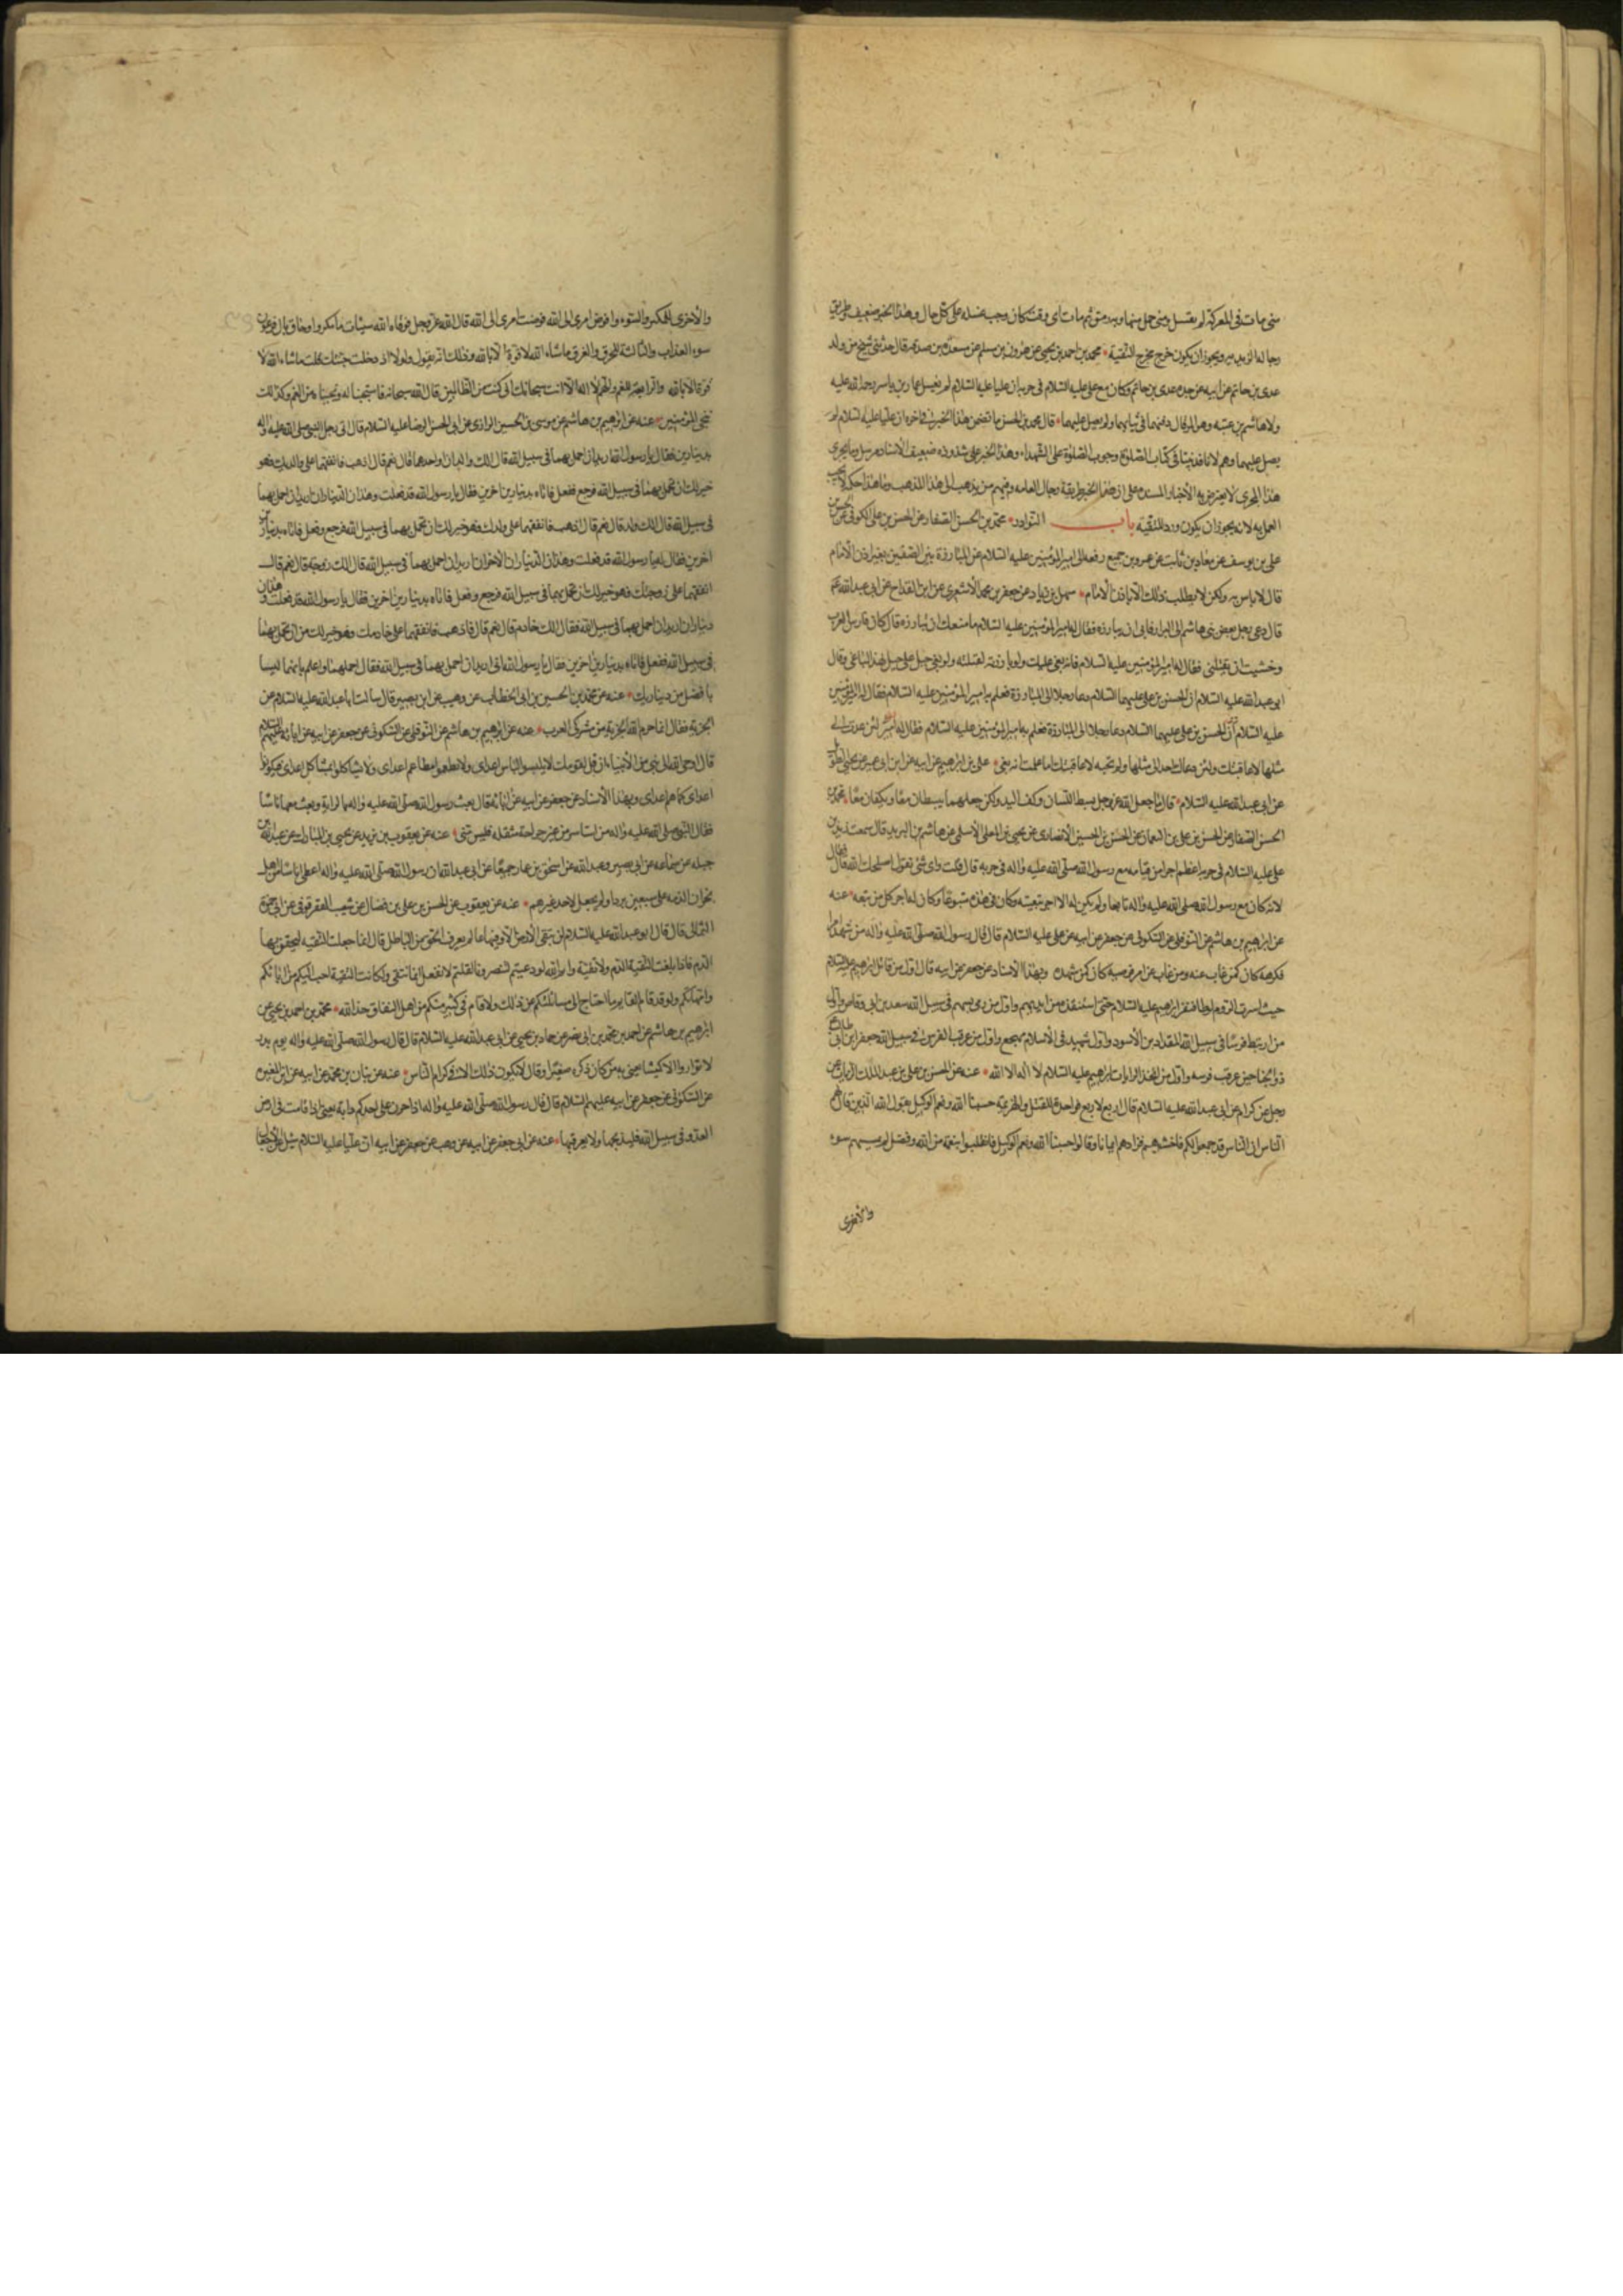 متى مات فى المعركة لم يغسل ومتى حمل منها وبه رمق ثم مات اى وقت كان وجب غسله على كل حال وهذا الخبر ضعيف طريق
رجاله الزيديه ويجوز ان يكون خرج مخرج التقية محمد بن احمد بن يحيى عن هرون بن مسلم عن مسعدة بن صدقه قال حدثنى شيخ من ولد
عدى بن حاتم عن ابيه عن جده عدى بن حاتم وكان مع على عليه السلام فى حروبه ان عليا عليه السلام لم يغسل عمار بن ياسر رحمة الله عليه
ولا هاشم بن عتبه وهو المرقال دفنهما فى ثيابهما ولم يصل عليهما قال محمد بن الحسن ما تضمن هذا الخبر فى اخره ان عليا عليه السلام لم
يصل عليهما وهم لانا قد بينا فى كتاب الصلوة وجوب الصلوة على الشهداء وهذا الخبر على شذوذه ضعيف الاسناد مرسل وما يجرى
هذا المجرى لا يعترض به الاخبار المسنده على ان هذا الخبر طريقه رجال العامه وفيهم من يذهب الى هذا المذهب وما هذا حكمه لا يجب
العمل به لانه يجوز ان يكون ورد للتقيه باب النوادر محمد بن الحسن الصفار عن الحسن بن على الكوفى عن الحسن بن
على بن يوسف عن معاذ بن ثابت عن عمرو بن جميع رفعه الى امير المؤمنين عليه السلام عن المبارزة بين الصفين بغير اذن الامام
قال لا باس به ولكن لا يطلب ذلك الا باذن الامام سهل بن زياد عن جعفر بن محمد الاشعرى عن ابن القداح عن ابى عبد الله ع
قال دعى رجل بعض بنى هاشم الى البراز فابى ان يبارزه فقال له امير المؤمنين عليه السلام ما منعك ان تبارزه قال كان فارس العرب
وخشيت ان يقتلنى فقال له امير المؤمنين عليه السلام فانه بغى عليك ولو بارزته لقتلته ولو بغى جبل على جبل لهد الباغى وقال
ابو عبد الله عليه السلام ان الحسن بن على عليهما السلام دعا رجلا الى المبارزة فعلم به امير المؤمنين عليه السلام فقال له امير المؤمنين
عليه السلام ان الحسين بن على عليهما السلام دعا رجلا الى المبارزة فعلم به امير المؤمنين عليه السلام فقال له امير لئن عدت الى
مثلها لاعاقبنك ولئن دعاك احد الى مثلها ولم تجبه لاعاقبنك اما علمت انه بغى على بن ابرهيم عن ابيه عن ابن ابى عمير عن
عن ابى عبد الله عليه السلام قال ما جعل الله عز وجل بسط اللسان وكف اليد ولكن جعلهما يبسطان معا ويكفان معا محمد بن
الحسن الصفار عن الحسن بن على بن النعمان عن الحسن بن الحسين الانصارى عن يحيى بن المعلى الاسلمى عن هاشم بن البريد قال سمعت زيد بن
على عليه السلام فى حربه اعظم اجرا من قيامه مع رسول الله صلى الله عليه واله فى حربه قال قلت واى شئ تقول اصلحك الله قال فقال
لانه كان مع رسول الله صلى الله عليه واله تابعا ولم يكن له الا اجر تبعيته وكان فى هذه متبوعا وكان له اجر كل من تبعه عنه
عن ابرهيم بن هاشم عن النوفلى عن السكونى عن جعفر عن ابيه عن على عليه السلام قال قال رسول الله صلى الله عليه واله من شهد امرا
فكرهه كان كمن غاب عنه ومن غاب عن امر فرضيه كان كمن شهده وبهذا الاسناد عن جعفر عن ابيه قال اول من قاتل ابرهيم عليه السلام
حيث اسرت الروم لوطا فنفر ابرهيم عليه السلام حتى استنقذه من ايديهم واول من رمى بسهم فى سبيل الله سعد بن ابى وقاص واول
من ارتبط فرسا فى سبيل الله المقداد بن الاسود واول شهيد فى الاسلام مهجع واول من عرقب الفرس فى سبيل الله جعفر بن ابى طالب ع
ذو الجناحين عرقب فرسه واول من اتخذ الرايات ابرهيم عليه السلام لا اله الا الله عنه عن الحسن بن على بن عبد الملك الزيات عن
رجل عن كرام عن ابى عبد الله عليه السلام قال اربع لاربع فواحدة للقتل والهزيمة حسبنا الله ونعم الوكيل يقول الله الذين قال لهم
الناس ان الناس قد جمعوا لكم فاخشوهم فزادهم ايمانا وقالوا حسبنا الله ونعم الوكيل فانقلبوا بنعمة من الله وفضل لم يمسهم سوء
والاخرى
والاخرى للمكر والسوء وافوض امرى الى الله فوضت امرى الى الله قال الله عز وجل فوقاه الله سيئات ما مكروا وحاق بال فرعون
سوء العذاب والثالثة للحرق والغرق ما شاء الله لا قوة الا بالله وذلك انه يقول ولولا اذ دخلت جنتك قلت ما شاء الله لا
قوة الا بالله والرابعة للغم والهم لا اله الا انت سبحانك انى كنت من الظالمين قال الله سبحانه فاستجبنا له ونجيناه من الغم وكذلك
ننجى المؤمنين عنه عن ابرهيم بن هاشم عن موسى بن الحسين الرازى عن ابى الحسن الرضا عليه السلام قال اتى رجل النبى صلى الله عليه واله
بدينارين فقال يا رسول الله اريد ان احمل بهما فى سبيل الله قال الك والدان او احدهما قال نعم قال اذهب فانفقهما على والديك فهو
خير لك ان تحمل بهما فى سبيل الله فرجع ففعل فاتاه بدينارين اخرين فقال يا رسول الله قد فعلت وهذان الديناران اريد ان احمل بهما
فى سبيل الله قال الك ولد قال نعم قال اذهب فانفقهما على ولدك فهو خير لك ان تحمل بهما فى سبيل الله فرجع وفعل فاتاه بدينارين
اخرين فقال له يا رسول الله قد فعلت وهذان الديناران الاخران اريد ان احمل بهما فى سبيل الله قال الك زوجة قال نعم قال
انفقهما على زوجتك فهو خير لك ان تحمل بهما فى سبيل الله فرجع وفعل فاتاه بدينارين اخرين فقال يا رسول الله قد فعلت وهذان
ديناران اريد ان احمل بهما فى سبيل الله فقال الك خادم قال نعم قال فاذهب فانفقهما على خادمك وهو خير لك من ان تحمل بهما
فى سبيل الله ففعل فاتاه بدينارين اخرين فقال يا رسول الله انى اريد ان احمل بهما فى سبيل الله فقال احملهما واعلم بانهما ليسا
بافضل من دينارك عنه عن محمد بن الحسين بن ابى الخطاب عن وهيب عن ابى بصير قال سالت ابا عبد الله عليه السلام عن
الجزية فقال انما حرم الله الجزية من مشركى العرب عنه عن ابرهيم بن هاشم عن النوفلى عن السكونى عن جعفر عن ابيه عن ابائه عليهم السلام
قال اوحى الله الى نبى من الانبياء ان قل لقومك لا يلبسوا لباس اعداى ولا تطعموا مطاعم اعداى ولا تشاكلوا بمشاكل اعداى فيكونوا
اعداى كما هم اعداى وبهذا الاسناد عن جعفر عن ابيه عن ابائه قال بعث رسول الله صلى الله عليه واله بالراية وبعث معها ناسا
فقال النبى صلى الله عليه واله من استاسر من غير جراحة مثقله فليس منى عنه عن يعقوب بن يزيد عن يحيى بن المبارك عن عبد الله بن
جبله عن سماعه عن ابى بصير وعبد الله عن اسحق بن عمار جميعا عن ابى عبد الله ان رسول الله صلى الله عليه واله اعطى اناسا من اهل
نجران الذمه على سبعين بردا ولم يجعل لاحد غيرهم عنه عن يعقوب عن الحسن بن على بن فضال عن شعيب العقرقوفى عن ابى حمزة
الثمالى قال قال ابو عبد الله عليه السلام لن تبقى الارض الا وفيها عالم يعرف الحق من الباطل قال انما جعلت التقيه ليحقن بها
الدم فاذا بلغت التقية الدم فلا تقية وايم الله لو دعيتم لتنصرونا لقلتم لا نفعل انما نتقى ولكانت التقية احب اليكم من ابائكم
وامهاتكم ولو قد قام القايم ما احتاج الى مسائلتكم عن ذلك ولاقام فى كثير منكم من اهل النفاق حد الله محمد بن احمد بن يحيى عن
ابرهيم بن هاشم عن احمد بن محمد بن ابى نصر عن حماد بن يحيى عن ابى عبد الله عليه السلام قال قال رسول الله صلى الله عليه واله يوم بدر
لا تواروا الا كميشا يعنى به من كان ذكره صغيرا وقال لا يكون ذلك الا فى كرام الناس عنه عن بنان بن محمد عن ابيه عن ابن المغيرة
عن السكونى عن جعفر عن ابيه عليهم السلام قال قال رسول الله صلى الله عليه واله اذا حرن على احدكم دابة يعنى اذا قامت فى ارض
العدو فى سبيل الله فليذبحها ولا يعرقبها عنه عن ابى جعفر عن ابيه عن وهب عن جعفر عن ابيه ان عليا عليه السلام سئل عن